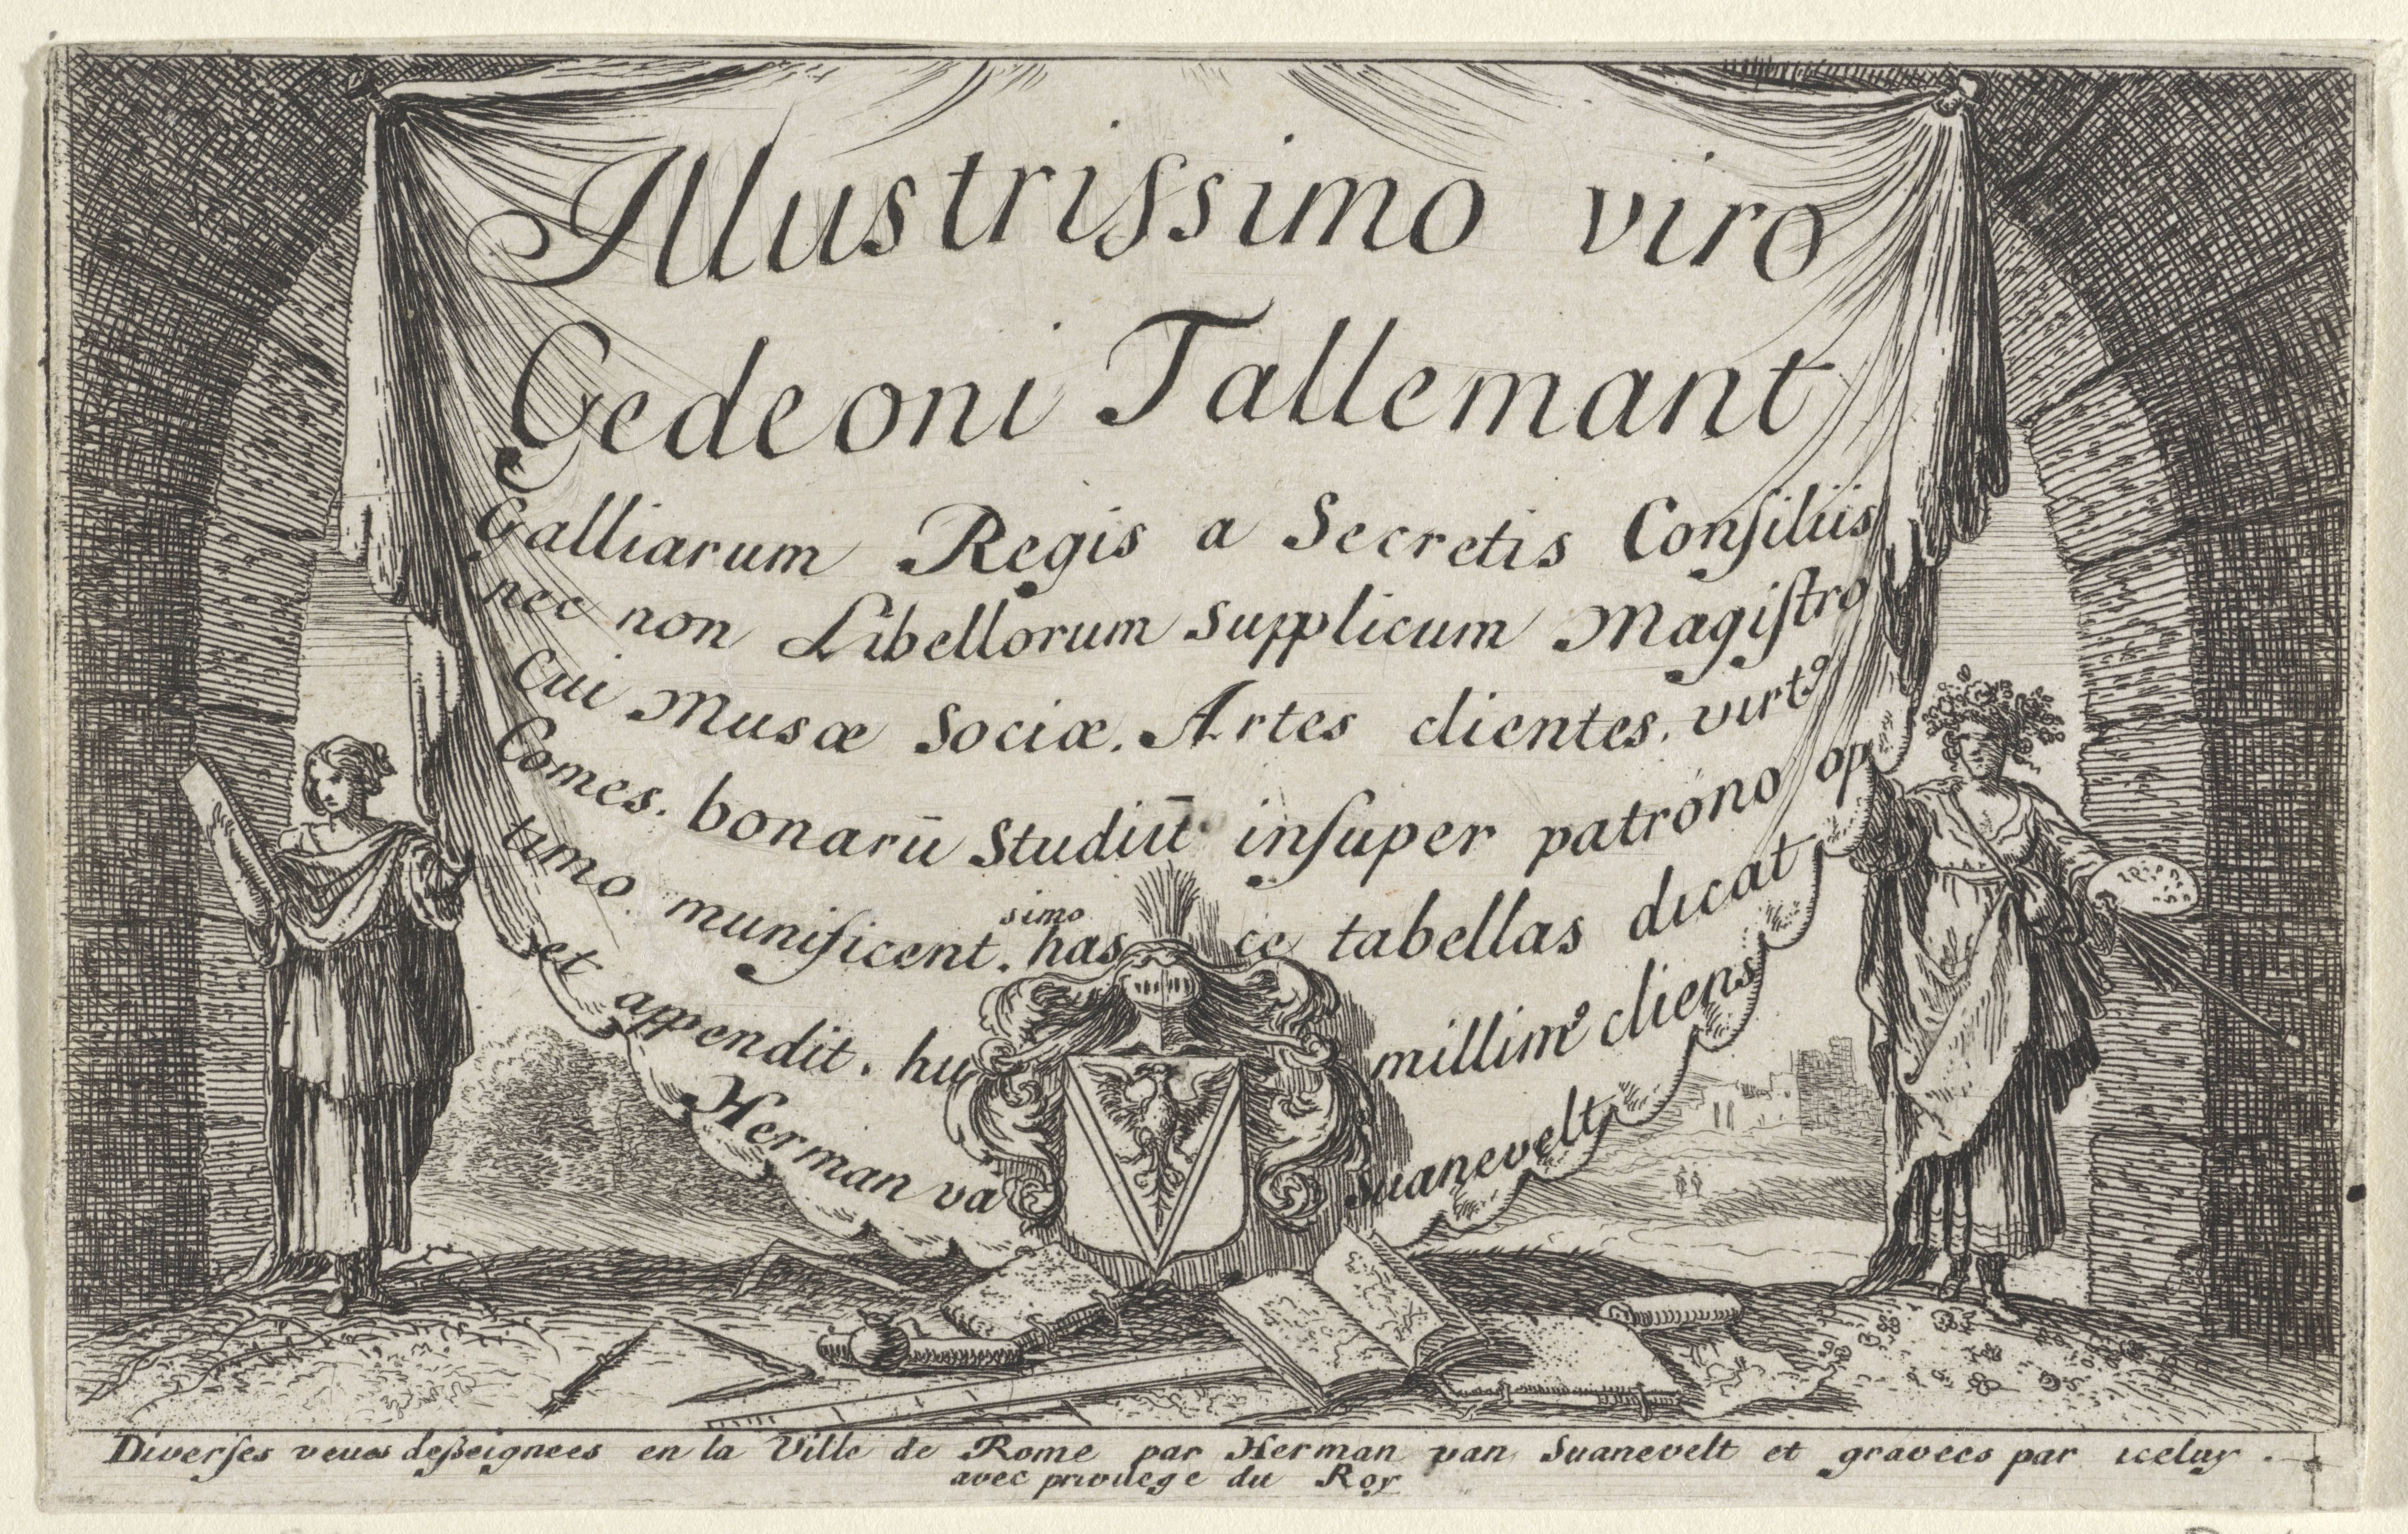 Illustrissimo viro
Gedeoni Tallemant
Galliarum Regis a Secretis Consiliis
nec non Libellorum supplicum Magistro
Cui Musæ Sociæ. Artes clientes. virtꝰ
Comes. bonarū Studiū insuper patrono op
timo. munificent.simo hasce tabellas dicat
et appendit. humillimꝰ cliens
Herman va Suanevelt
Diverses veues desseignees en la Ville de Rome par Herman van Suanevelt et gravees par iceluy.
avec privilege du Roy